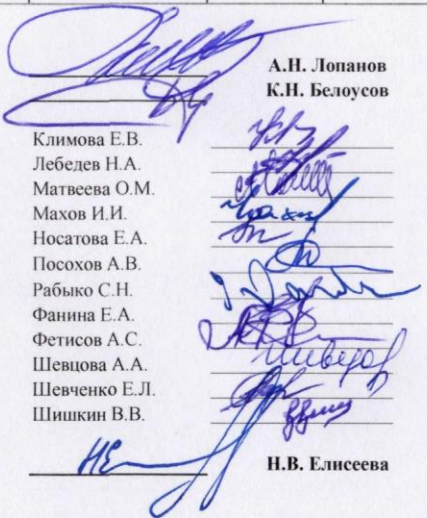 А.Н. Лопанов
К.Н. Белоусов
Климова Е.В.
Лебедев Н.А.
Матвеева О.М.
Махов И.И.
Носатова Е.А.
Посохов А.В.
Рабыко С.Н.
Фанина Е.А.
Фетисов А.С.
Шевцова А.А.
Шевченко Е.Л.
Шишкин В.В.
Н.В. Елисеева